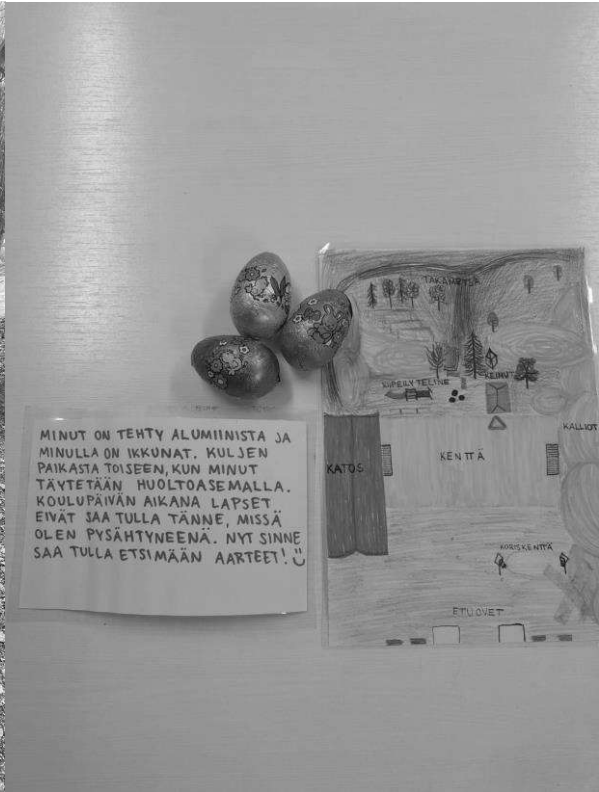 MINUT ON TEHTY ALUMIINISTA JA
MINULLA ON IKKUNAT. KULJEN
PAIKASTA TOISEEN, KUN MINUT
TÄYTETÄÄN HUOLTOASEMALLA.
KOULUPÄIVÄN AIKANA LAPSET
EIVÄT SAA TULLA TÄNNE, MISSÄ
OLEN PYSÄHTYNEENÄ. NYT SINNE
SAA TULLA ETSIMÄÄN AARTEET!
TAKAMETSÄ
KIIPEILYTELINE
KEINUT
KALLIOT
KATOS
KENTTÄ
KORISKENTTÄ
ETUOVET